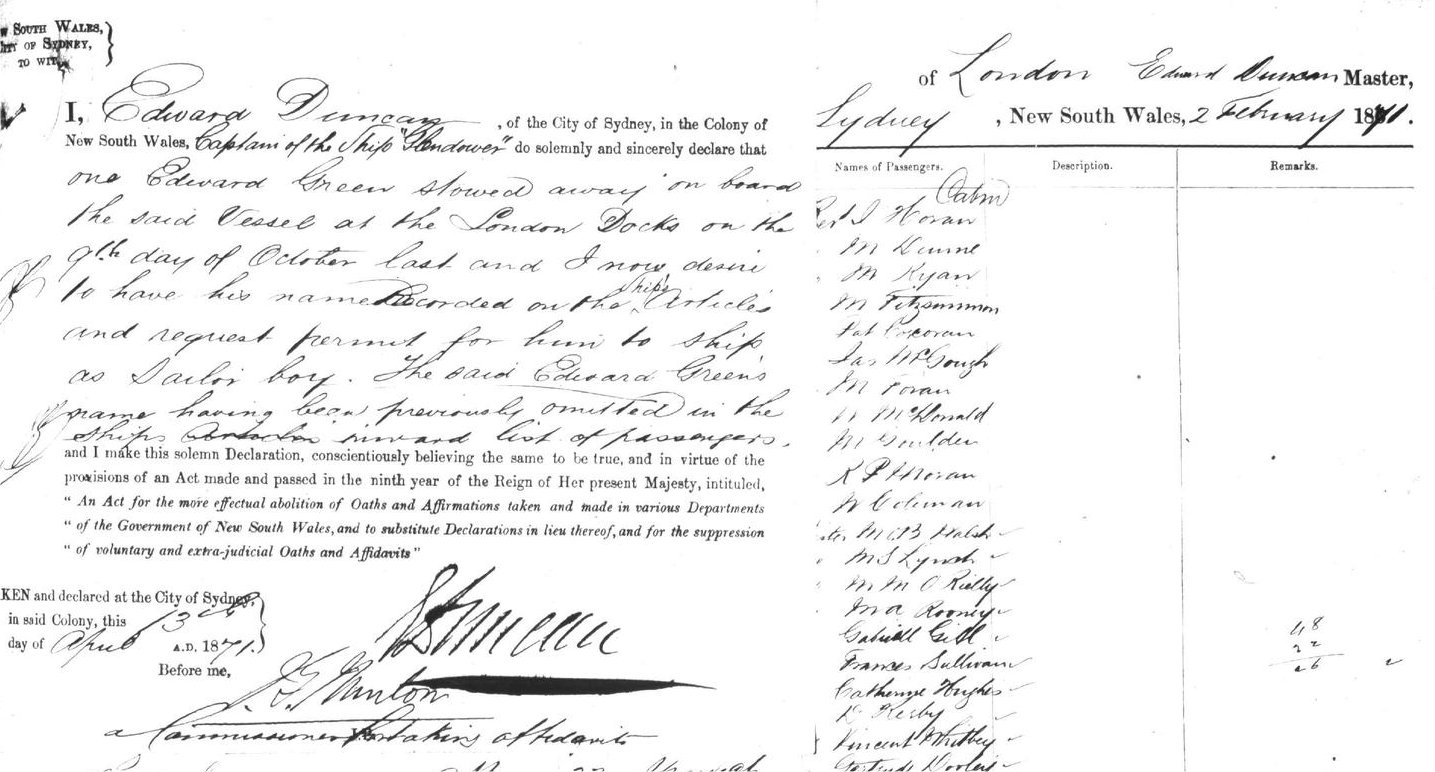 SOUTH WALES,
OF SYDNEY,
TO WIT
I, Edward Duncan, of the City of Sydney, in the Colony of
New South Wales, Captain of the Ship "Glendower" do solemnly and sincerely declare that
one Edward Green stowed away on board
the said Vessel at the London Docks on the
9th day of October last and I now desire
to have his name Recorded on the ship's Articles
and request permit for him to ship
as Sailor boy. The said Edward Green's
name having been previously omitted in the
ships inward list of passengers.
and I make this solemn Declaration, conscientiously believing the same to be true, and in virtue of the
provisions of an Act made and passed in the ninth year of the Reign of Her present Majesty, intituled,
"An Act for the more effectual abolition of Oaths and Affirmations taken and made in various Departments
"of the Government of New South Wales, and to substitute Declarations in lieu thereof, and for the suppression
"of voluntary and extra-judicial Oaths and Affidavits"
KEN and declared at the City of Sydney,
in said Colony, this 13th
day of April A.D. 1871.
Before me,
a Commissioner for taking affidavits
of London Edward Duncan Master,
Sydney, New South Wales, 2 February 1871.
Names of Passengers. Description. Remarks.
Cabin
J Horan
M Dunne
M Ryan
M Fitzsimmon
Pat Corcoran
Jas McGough
M Foran
McDonald
M Goulden
K P Moran
W Coleman
M B Walsh
M S Lynch
M M O Rielly
M A Rooney
Gabriell Gill
Frances Sullivan
Catherine Hughes
D Kirby
Vincent Whitby
Gertrude
48
22
26